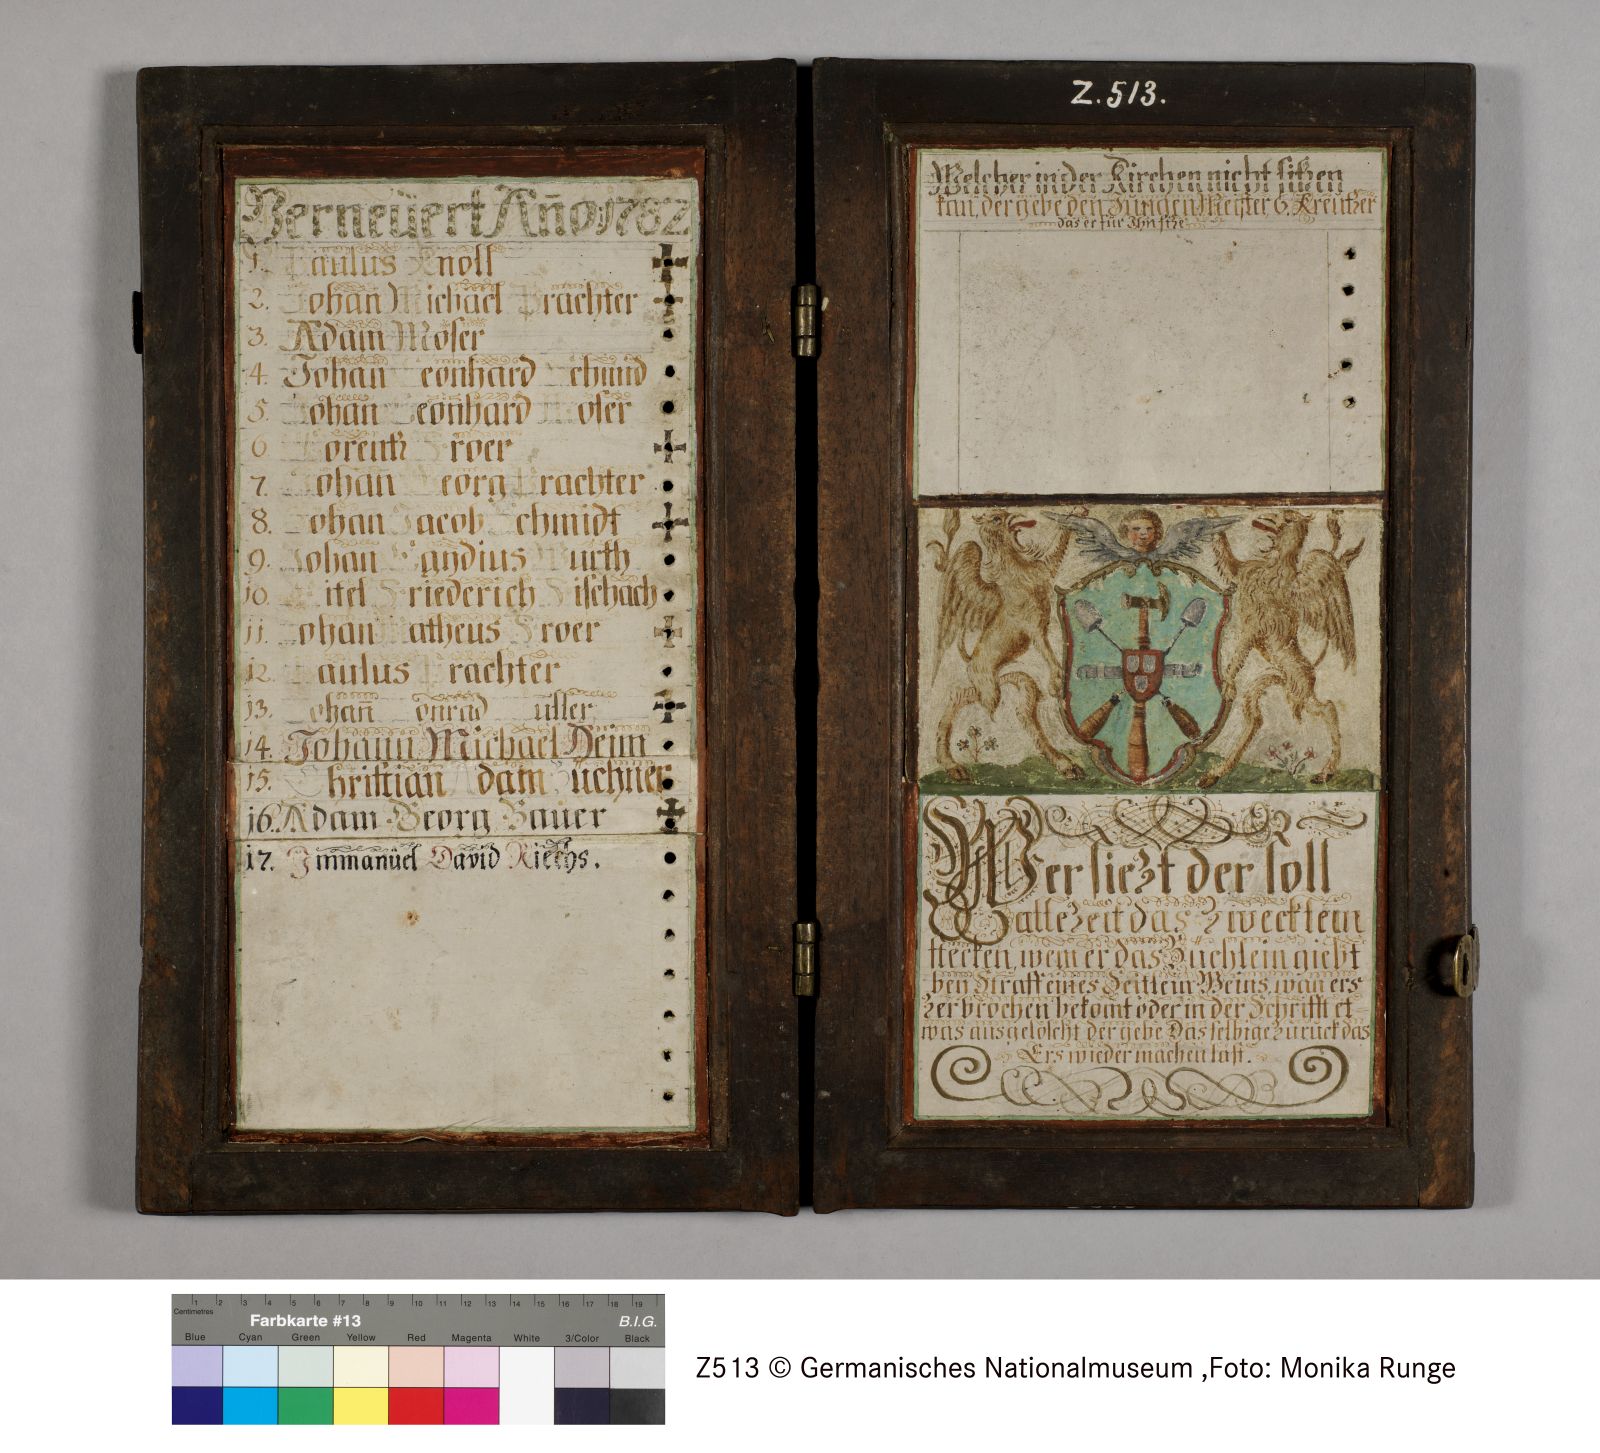 Z.513.
Verneüert Año 1782
1. Paulus Knoll
2. Johan Michael Prachter
3. Adam Moser
4. Johan Leonhard Schmid
5. Johan Leonhard Moser
6 Lorentz Kroer
7. Johan Georg Prachter
8. Johan Jacob Schmidt
9. Johan Wurth
10. Eitel Friederich Fischach
11. Johan Matheus Kroer
12. Paulus Prachter
13. Johañ Conrad
14. Johann Michael Heim
15. Christian Adam Büchner
16. Adam Georg Bauer
17. Immanüel David Riechs.
Welcher in der Kirchen nicht sitzen
kan, der gebe den Jungen Meister 6. Kreutzer
das er für Ihn sitze
Wer liezt der soll
allezeit das Zwecklein
stecken, wem er das Büchlein giebt
beÿ Straff eines Seitlein Weins, wan ers
zerbrochen bekomt oder in der Schrifft et
was ausgelöscht der gebe Das selbige zurück das
Ers wieder machen last.
Centimetres 1 2 3 4 5 6 7 8 9 10 11 12 13 14 15 16 17 18 19
Farbkarte #13 B.I.G.
Blue Cyan Green Yellow Red Magenta White 3/Color Black
Z513 © Germanisches Nationalmuseum ,Foto: Monika Runge